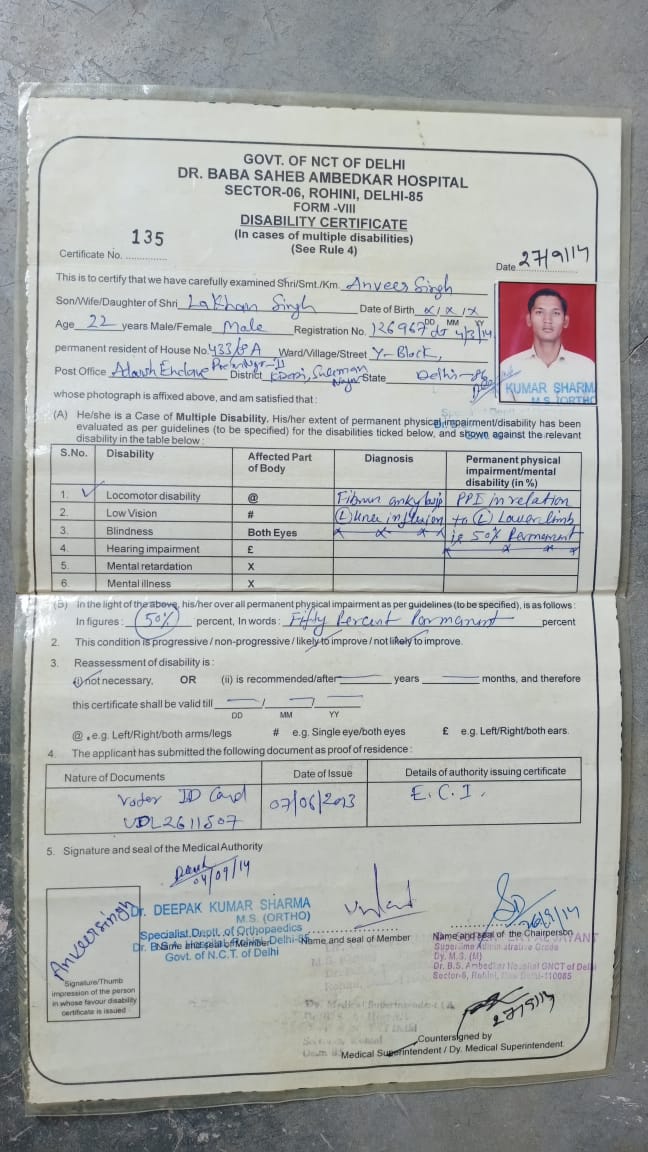 GOVT. OF NCT OF DELHI
DR. BABA SAHEB AMBEDKAR HOSPITAL
SECTOR-06, ROHINI, DELHI-85
FORM -VIII
DISABILITY CERTIFICATE
(In cases of multiple disabilities)
(See Rule 4)
Certificate No. 135
Date 27/9/14
This is to certify that we have carefully examined Shri/Smt./Km. Anveer Singh
Son/Wife/Daughter of Shri Lakhan Singh Date of Birth x/x/x
DD MM YY
Age 22 years Male/Female Male Registration No. 126967 dt 4/3/14
permanent resident of House No. 433/ A Ward/Village/Street Y-Block,
Post Office Adarsh Enclave District State Delhi-86
whose photograph is affixed above, and am satisfied that :
KUMAR SHARM
M.S. (ORTHO
(A) He/she is a Case of Multiple Disability. His/her extent of permanent physical impairment/disability has been
evaluated as per guidelines (to be specified) for the disabilities ticked below, and shown against the relevant
disability in the table below :
S.No. Disability Affected Part of Body Diagnosis Permanent physical impairment/mental disability (in %)
1. ✓ Locomotor disability @ PPI in relation
2. Low Vision # (L) knee to (L) Lower limb
3. Blindness Both Eyes x x x x is 50% Permanent
4. Hearing impairment £ x x x x
5. Mental retardation X
6. Mental illness X
(B) In the light of the above, his/her over all permanent physical impairment as per guidelines (to be specified), is as follows :
In figures : 50% percent, In words : Fifty Percent Permanent percent
2. This condition is progressive / non-progressive / likely to improve / not likely to improve.
3. Reassessment of disability is :
(i) not necessary, OR (ii) is recommended/after years months, and therefore
this certificate shall be valid till / /
DD MM YY
@ . e.g. Left/Right/both arms/legs # e.g. Single eye/both eyes £ e.g. Left/Right/both ears.
4. The applicant has submitted the following document as proof of residence :
Nature of Documents Date of Issue Details of authority issuing certificate
Voter ID Card 07/06/2013 E.C.I.
UDL2611507
5. Signature and seal of the Medical Authority
04/09/14
Anveersingh
Dr. DEEPAK KUMAR SHARMA
M.S. (ORTHO)
Specialist Deptt. of Orthopaedics
Govt. of N.C.T. of Delhi
Name and seal of Member
Name and seal of Member
Name and seal of the Chairperson
Dy. M.S. (M)
Dr. B.S. Ambedkar Hospital GNCT of Delhi
Sector-6, Rohini, New Delhi-110085
Signature/Thumb
impression of the person
in whose favour disability
certificate is issued
27/9/14
Countersigned by
Medical Superintendent / Dy. Medical Superintendent